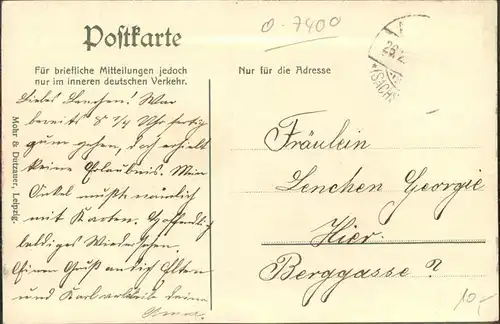 0-7400
Postkarte
Für briefliche Mitteilungen jedoch
nur im inneren deutschen Verkehr.
Nur für die Adresse
Mohr & Dutzauer, Leipzig.
Liebes Lenchen! War
bereits 8 ¼ Uhr fertig
zum gehen, doch erhielt
keine Erlaubnis. Mein
Onkel mußte nämlich
mit Karten. Hoffentlich
baldiges Wiedersehen.
Einen Gruß an die Eltern
und Karl verbleibt Deine
Fräulein
Lenchen Georgie
Hier.
Berggasse ?
10,-